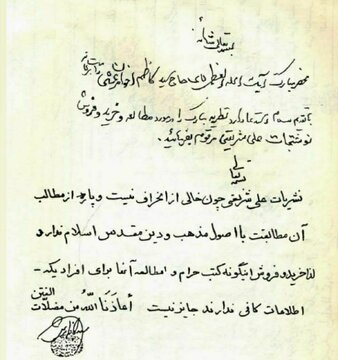 بسمه تعالی شأنه
محضر مبارک آیت الله العظمی آقای حاج سید کاظم اخوان مرعشی
با تقدیم سلام استدعا دارد نظریه مبارک را در مورد مطالعه و خرید و فروش
نوشتجات علی شریعتی مرقوم بفرمائید.
بسمه تعالی
نشریات علی شریعتی چون خالی از انحراف نیست و پاره از مطالب
آن مطابقت با اصول مذهب و دین مقدس اسلام ندارد
لذا خرید و فروش اینگونه کتب حرام و مطالعه آنها برای افرادیکه
اطلاعات کافی ندارند جایز نیست أعاذنا الله من مضلات الفتن